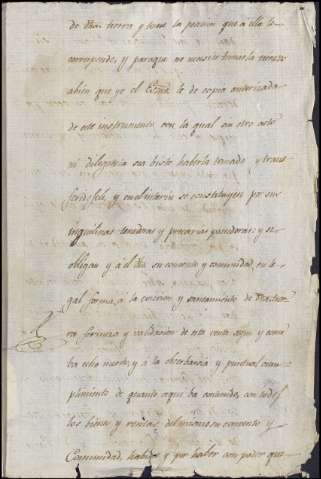 de dha. tierra y tome la posesion que a ella le
corresponde, y para que no necesite tomarla consta
ahien que yo el Essno. le de copia autorizada
de este instrumento con la qual sin otro acto
ni diligencia sea bisto haberla tomado y trans
feridosele, y en el interin se constituyen por sus
inquilinas tenedoras y precarias poseedoras: y se
obligan y a el dho. su convento y comunidad, en le
gal forma, a la eviccion y saneamiento de dha tier
ra, firmeza y validacion de esta venta segun y como
ba echa, y a la observancia y puntual cum
plimiento de quanto aqui ba contenido, con todos
los bienes y rentas del mismo su convento y
Comunidad, habidos y por haber con poder que